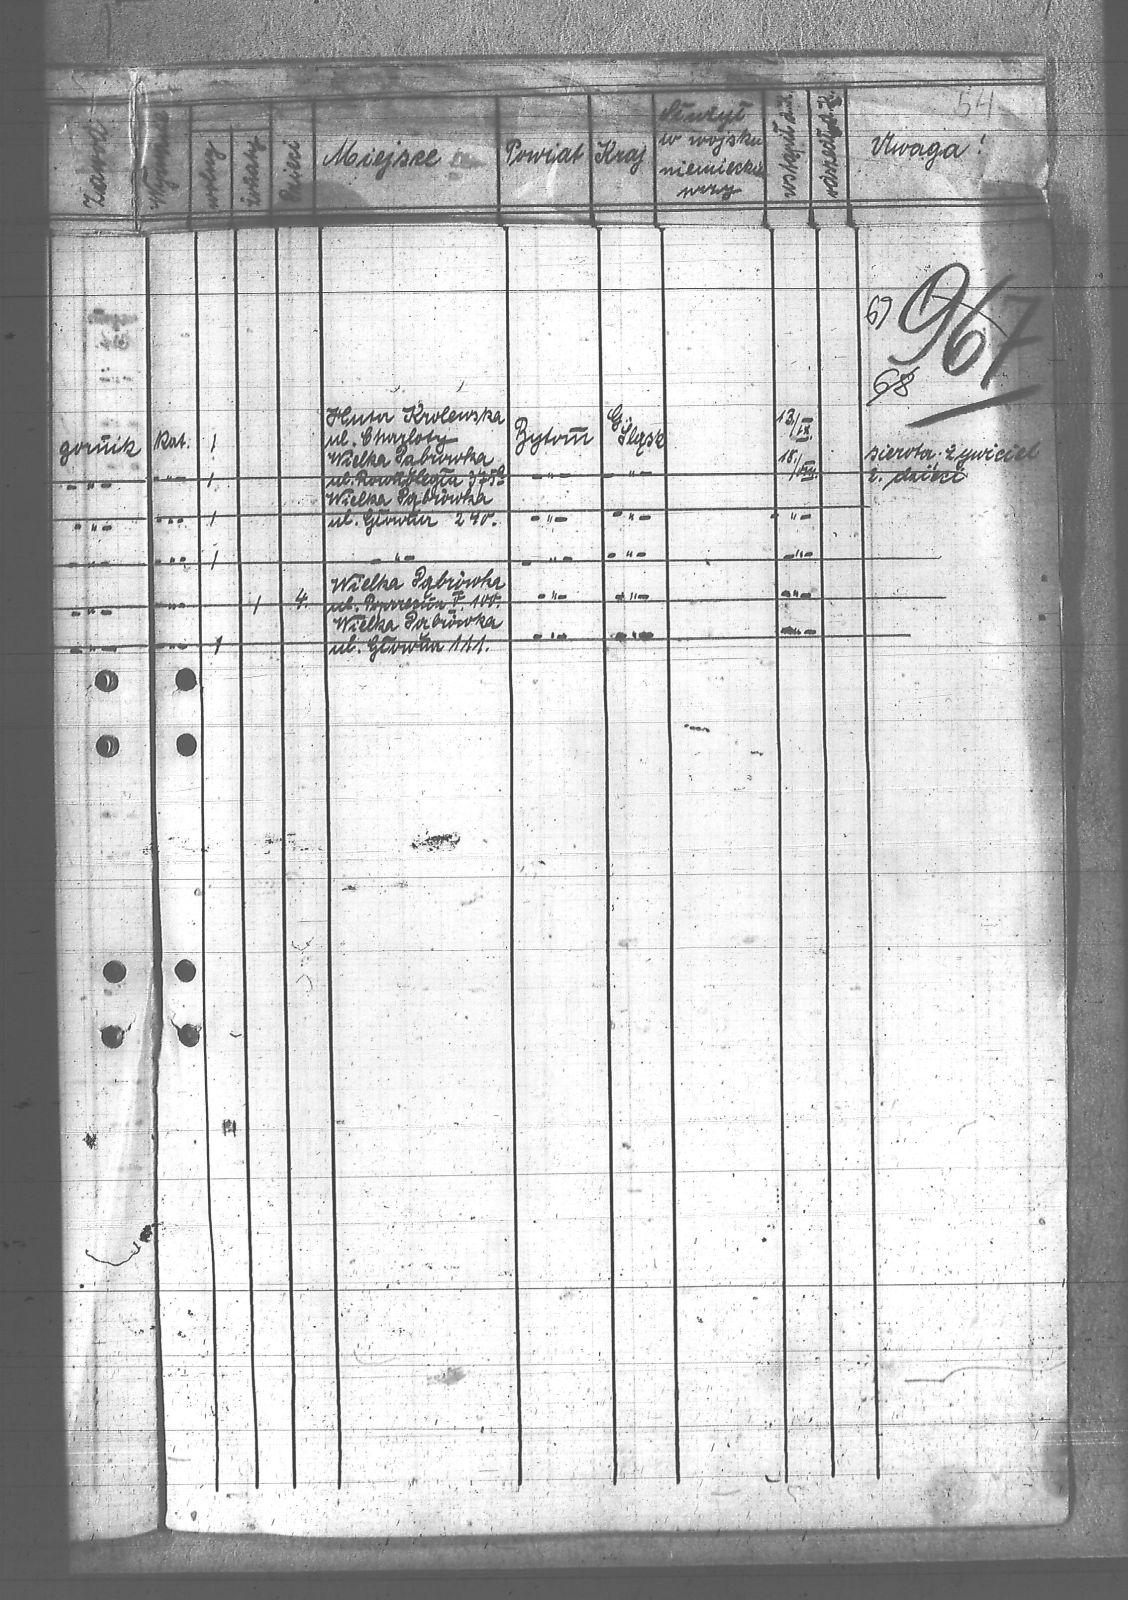 54
Zawód Wyznanie wolny żonaty Dzieci Miejsce Powiat Kraj Służył w wojsku niemieckim wstąpił d. Uwaga!
67
967
68
górnik Kat. 1 Huta Królewska ul. Charloty Bytom G. Śląsk 13/IX
-"- -"- 1 Wielka Dąbrówka ul. -"- -"- 18/VIII. sierota. żywiciel 2. dzieci
-"- -"- 1 Wielka Dąbrówka ul. Główna 240. -"- -"- -"-
-"- -"- 1 -"- -"- -"- -"-
-"- -"- 1 4. Wielka Dąbrówka ul. 100. -"- -"- -"-
-"- -"- 1 Wielka Dąbrówka ul. Główna 111. -"- -"- -"-